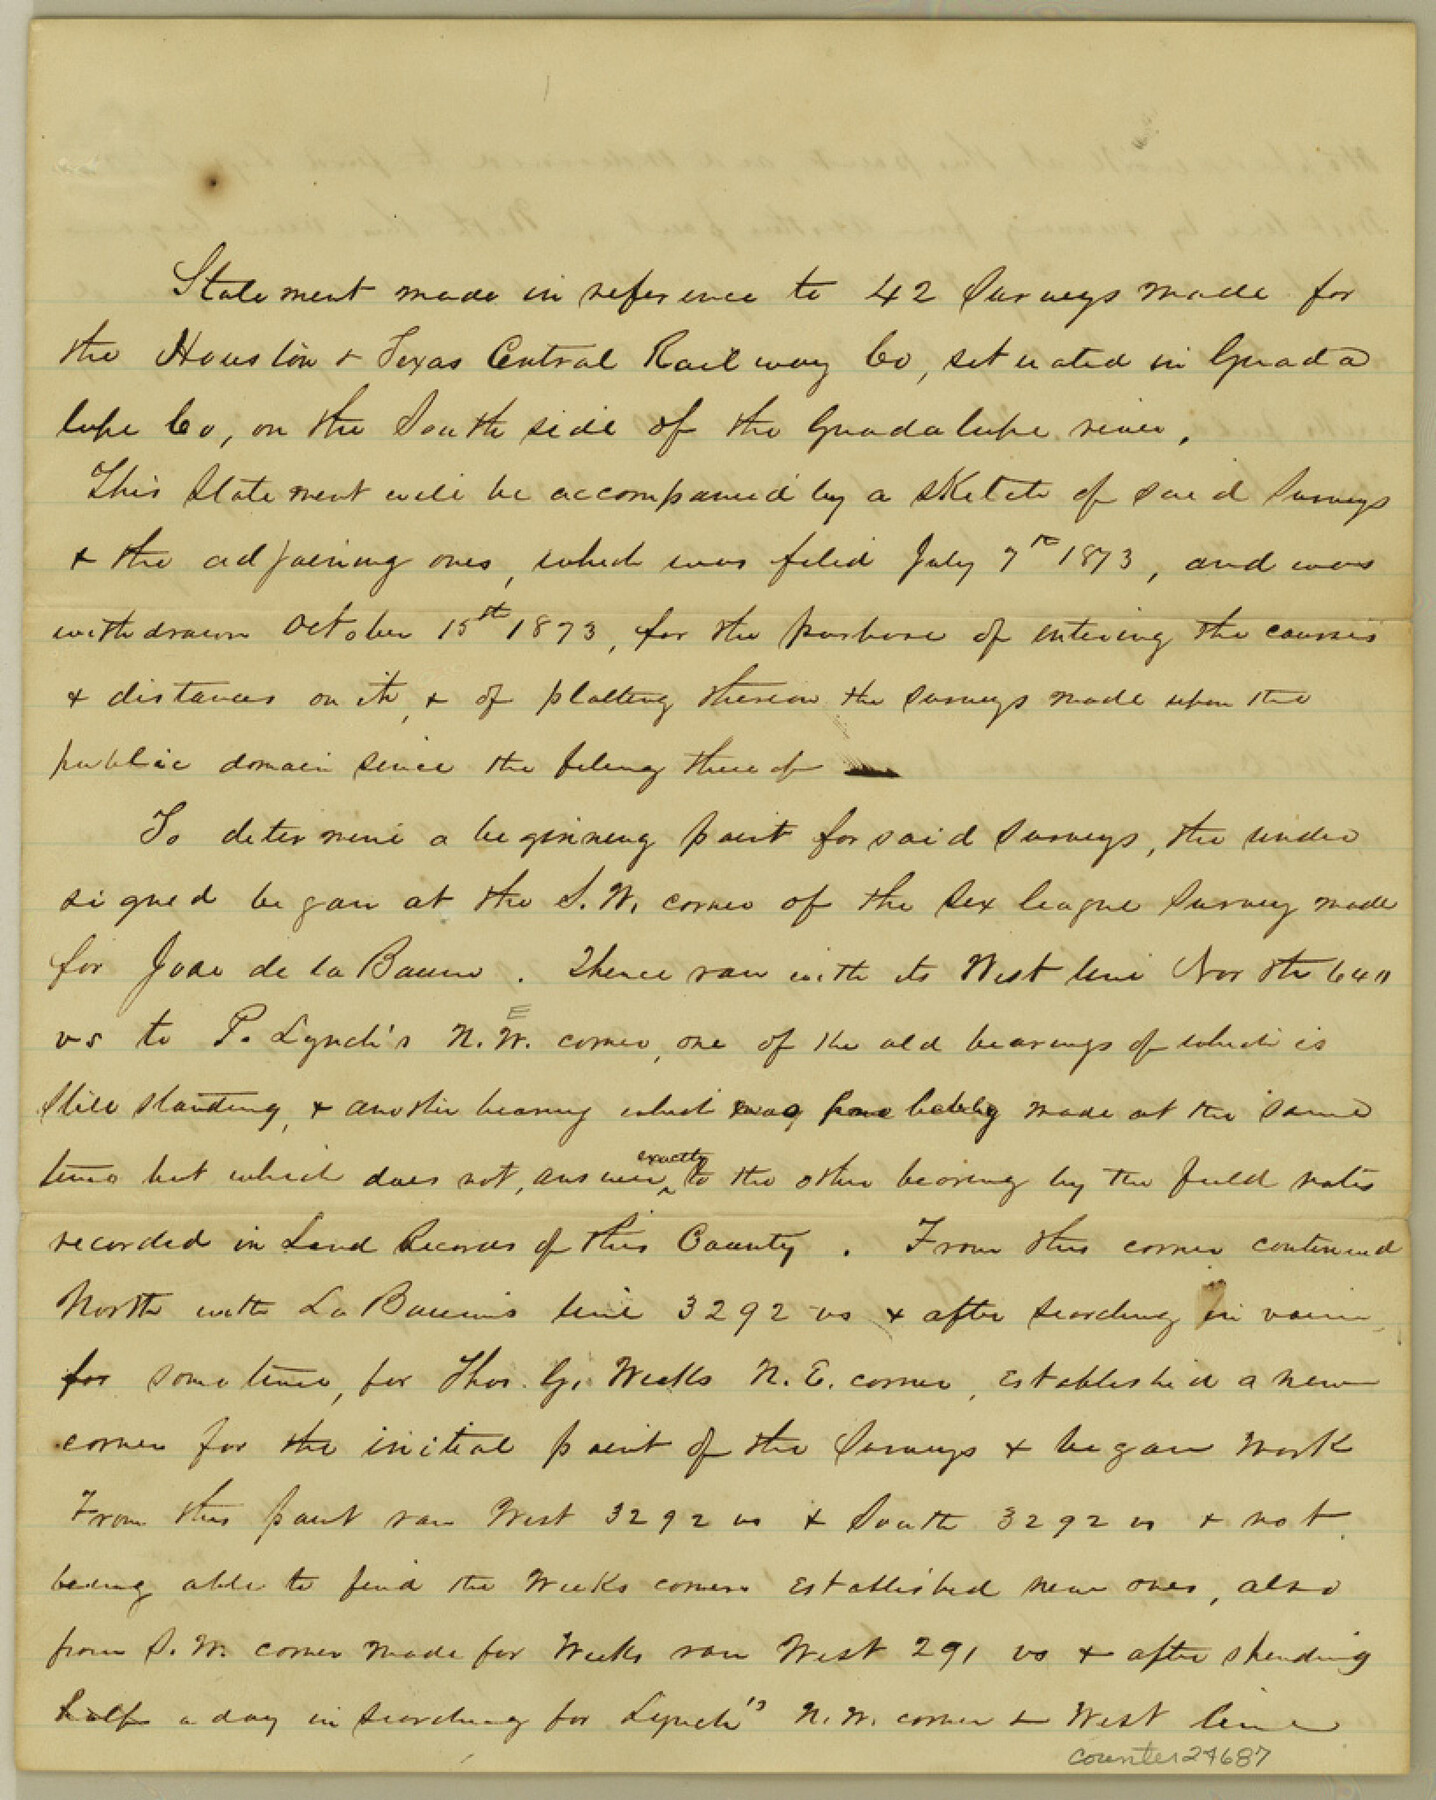 Statement made in reference to 42 Surveys made for
the Houston & Texas Central Railway Co, situated in Guada
lupe Co, on the South side of the Guadalupe river.
This Statement will be accompanied by a sketch of said Surveys
& the adjoining ones, which was filed July 7th 1873, and was
withdrawn October 15th 1873, for the purpose of entering the courses
& distances on it, & of platting thereon the surveys made upon the
public domain since the fileing thereof
To determine a beginning point for said Surveys, the under
signed began at the S.W. corner of the Six league Survey made
for Jose de la Baume. Thence ran with its West line North 640
vs to P. Lynch's N.W. E corner, one of the old bearings of which is
still standing, & another bearing which was probably made at the same
time but which does not, answer exactly to the other bearing by the field notes
recorded in Land Records of this County. From this corner continued
North with La Baume's line 3292 vs & after searching in vain
for some time, for Thos. G. Weeks N.E. corner, established a new
corner for the initial point of the Surveys & began work
From this point ran West 3292 vs & South 3292 vs & not
being able to find the Weeks corners established new ones, also
from S.W. corner made for Weeks ran West 291 vs & after spending
half a day in searching for Lynch's N.W. corner & West line
counter 24687